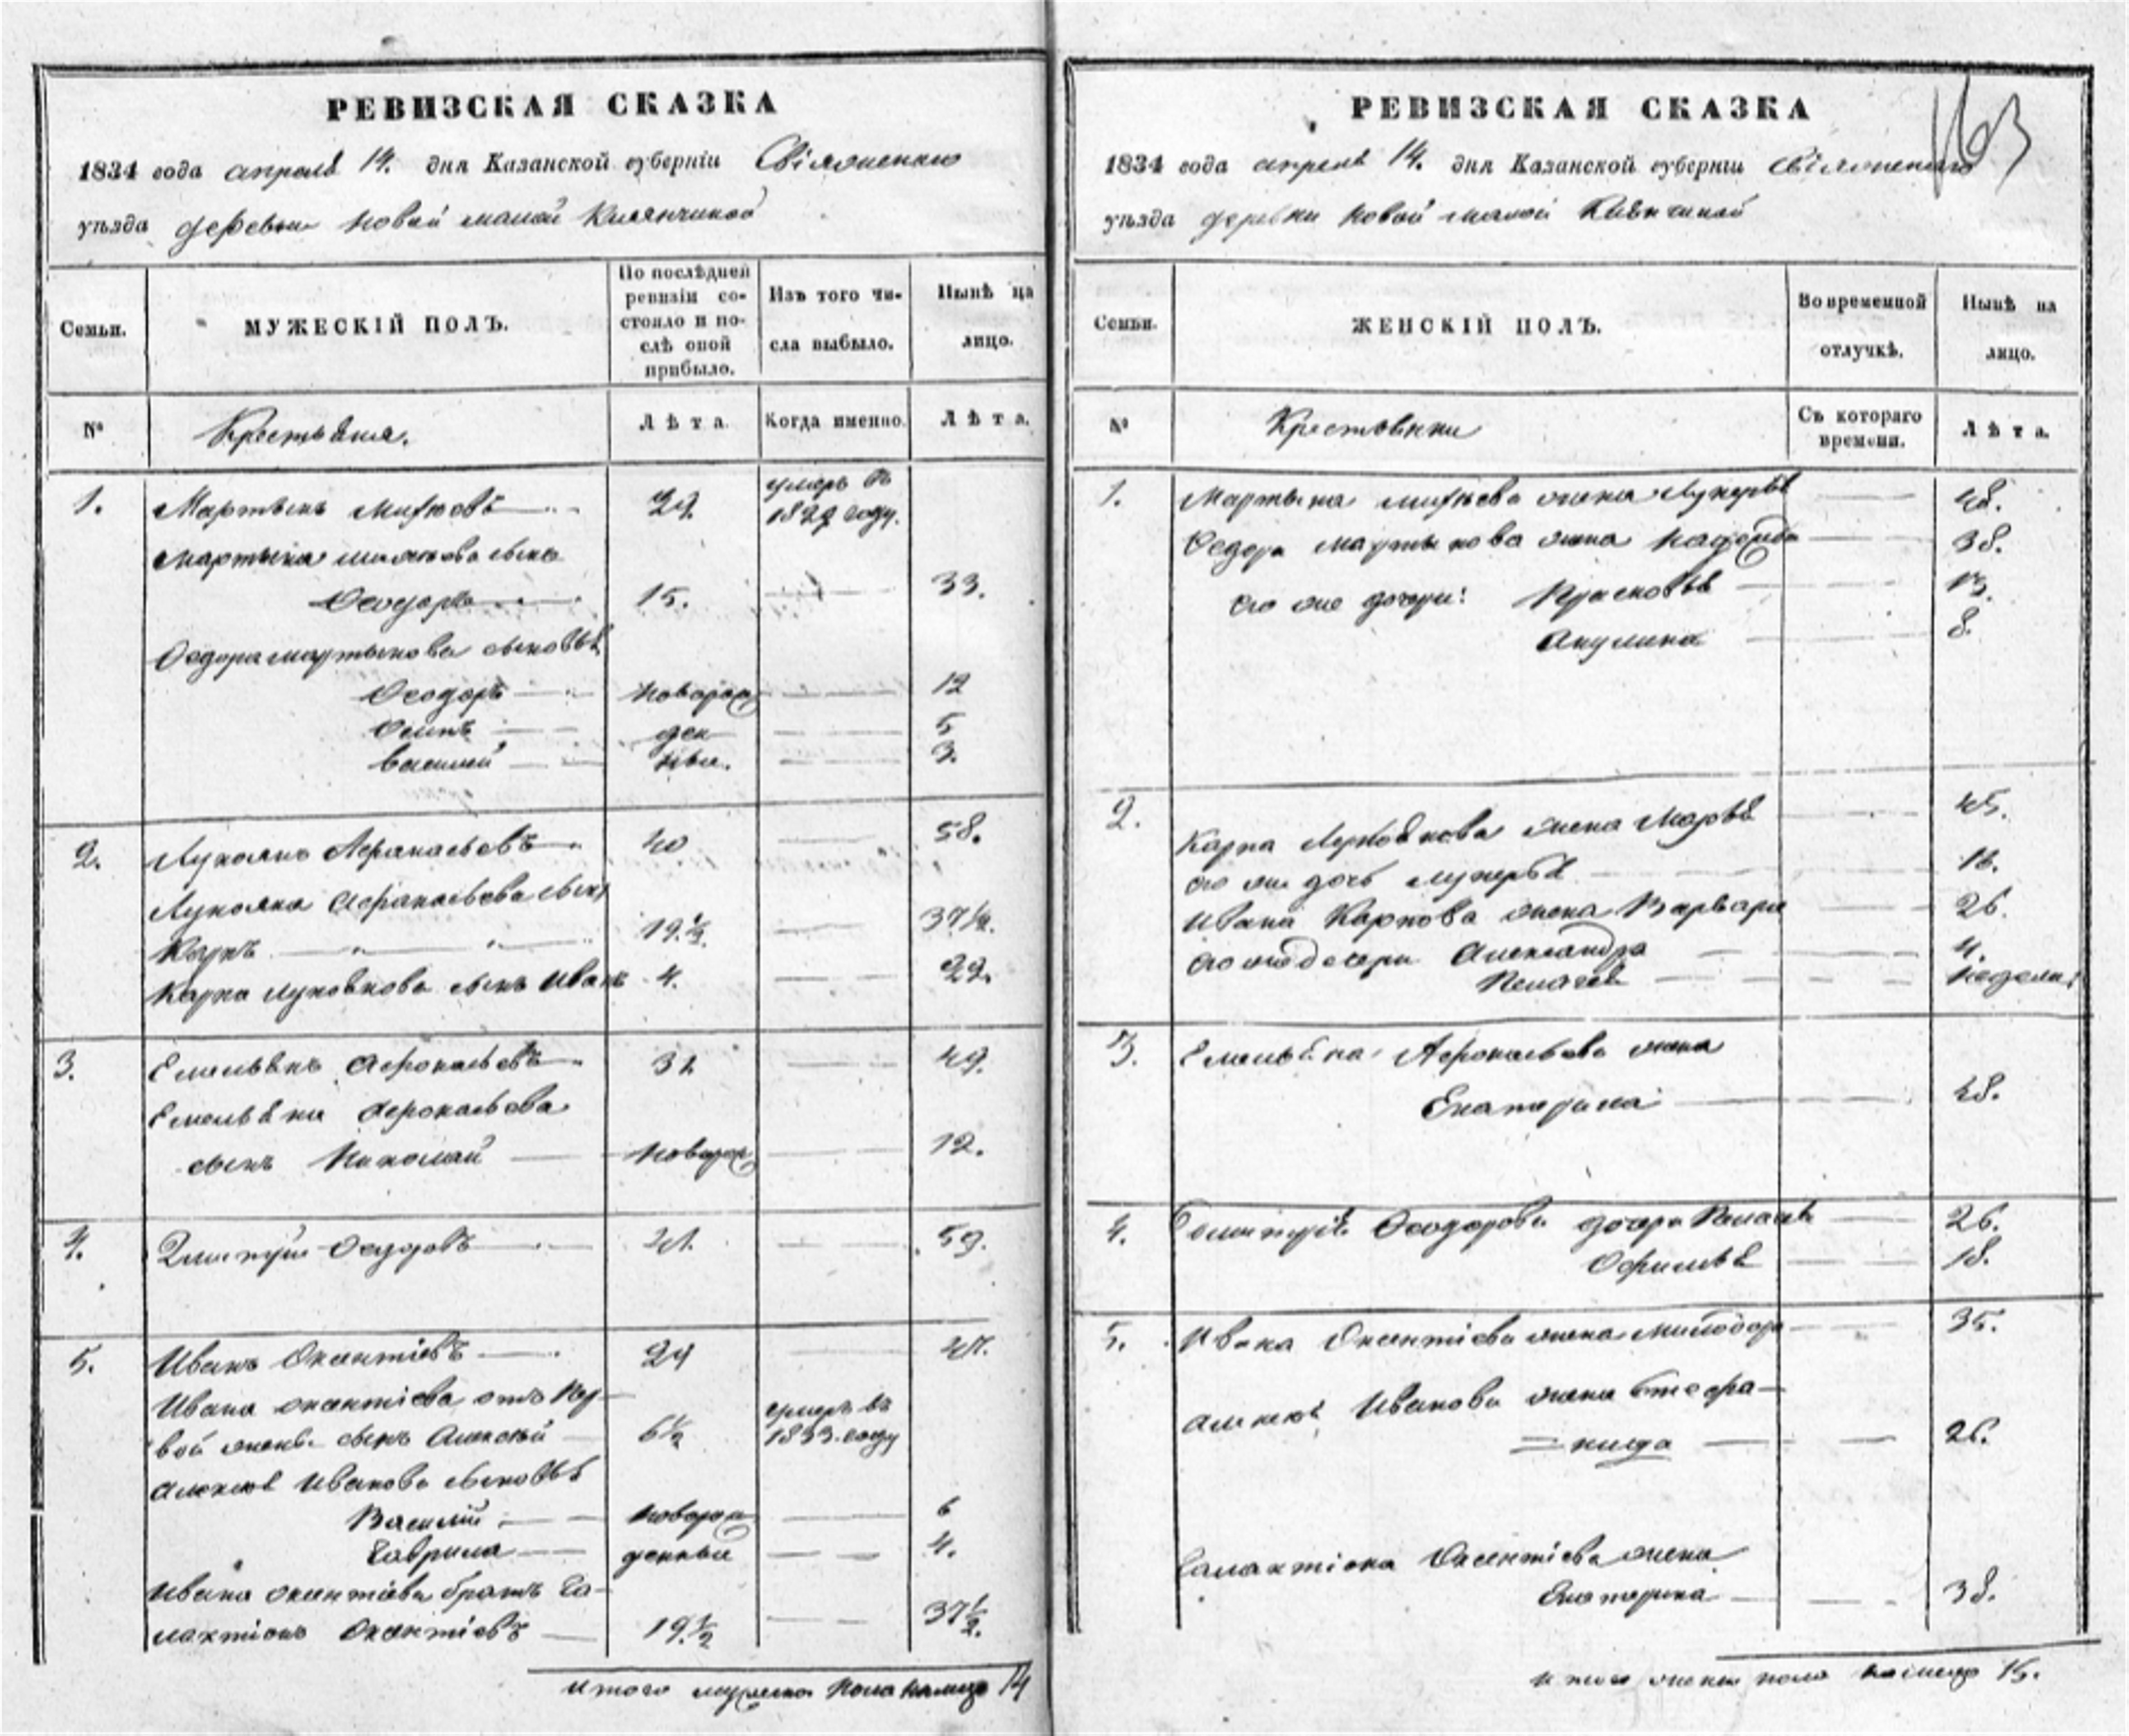 РЕВИЗСКАЯ СКАЗКА
1834 года апреля 14. дня Казанской губернiи Свiяжскаго
уѣзда деревни Новой малой
Семьи.
МУЖЕСКIЙ ПОЛЪ.
По послѣдней ревизiи со-
стояло и по-
слѣ оной
прибыло.
Изъ того чи-
сла выбыло.
Нынѣ на
лицо.
№
Крестьяня.
Лѣта.
Когда именно.
Лѣта.
1. Мартынъ 29. умеръ въ
1829 году.
Мартына сынъ
Ѳеодоръ 15. 33.
Ѳедора Мартынова сыновья
Ѳеодоръ новорож 12
Осипъ ден 5
Василей ные. 3.
2. Лукоянъ Афанасьевъ 40 58.
Лукояна Афанасьева сынъ
Карпъ 19.½. 37½.
Карпа Лукоянова сынъ Иванъ 4. 22.
3. Емельянъ Афонасьевъ 31 49.
Емельяна Афонасьева
сынъ Николай новорож 12.
4. Дмитрiй Ѳедоровъ 41. 59.
5. Иванъ Оксентiевъ 29 47.
Ивана Оксентiева отъ пер-
вой жены сынъ Алексей 6½ умеръ въ
1833 году
Алексея Иванова сыновья
Василiй новорож 6
Гаврила денные 4.
Ивана Оксентiева братъ Га-
лактiонъ Оксентiевъ 19.½ 37½.
Итого мужеска пола на лицо 14
РЕВИЗСКАЯ СКАЗКА
163
1834 года апреля 14. дня Казанской губернiи Свiяжскаго
уѣзда деревни Новой малой
Семьи.
ЖЕНСКIЙ ПОЛЪ.
Во временной
отлучкѣ.
Нынѣ на
лицо.
№
Крестьянки
Съ котораго
времени.
Лѣта.
1. Мартына жена Лукерья 48.
Ѳедора Мартынова жена 38.
его же дочери: Прасковья 13.
Акулина 8.
2. Карпа Лукоянова жена Марья 45.
его же дочь Лукерья 16.
Ивана Карпова жена Варвара 26.
его же дочери Александра 4.
Пелагея недели
3. Емельяна Афонасьева жена
Екатерина 48.
4. Дмитрiя Ѳеодорова дочери Пелагея 26.
Офимья 18.
5. Ивана Оксентiева жена 35.
Алексея Иванова жена Стефа-
нида 26.
Галактiона Оксентiева жена
Екатерина 38.
Итого женска пола на лицо 15.